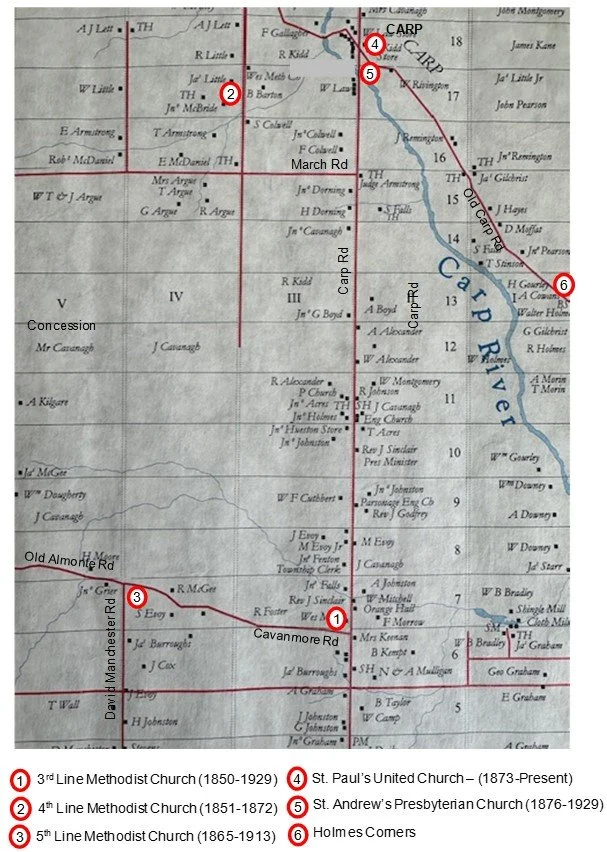 Mrs Cavanagh
John Montgomery
A J Lett
TH
A J Lett
F Gallagher
W
Store
CARP
4
Kidd
Store
CARP
18
James Kane
R Little
R Kidd
5
Jaˢ Little
Wes Meth C
Jaˢ Little Jr
W Little
TH
2
B Barton
W Law
W Rivington
17
Jnᵒ McBride
John Pearson
S Colwell
E Armstrong
T Armstrong
Jnᵒ Colwell
J Remington
F Colwell
Robᵗ McDaniel
E McDaniel
TH
March Rd
16
TH
Jnᵒ Remington
Mrs Argue
TH
Judge Armstrong
TH
Jaˢ Gilchrist
W T & J Argue
T Argue
Jnᵒ Dorning
15
G Argue
R Argue
H Dorning
S Falls
TH
J Hayes
Old Carp Rd
Jnᵒ Cavanagh
D Moffat
14
S Fall
Jnᵒ Pearson
T Stinson
Carp Rd
Carp River
R Kidd
H Gourley
6
V
IV
III
II
Carp Rd
13
I
A Cowan
BS
Jnᵒ G Boyd
A Boyd
Walter Holm
Concession
A Alexander
G Gilchrist
Mr Cavanagh
J Cavanagh
12
R Holmes
W Alexander
W Holmes
R Alexander
W Montgomery
A Morin
T Morin
P Church
R Johnson
A Kilgare
Jnᵒ Acres
TH
SH
J Cavanagh
11
Jnᵒ Holmes
Eng Church
Jnᵒ Hueston Store
T Acres
Jnᵒ Johnston
Rev J Sinclair
Pres Minister
10
Wᵐ Gourley
Jaˢ McGee
Wᵐ Dougherty
Jnᵒ Johnston
Wᵐ Downey
W F Cuthbert
Parsonage Eng Ch
9
J Cavanagh
Rev J Godfrey
A Downey
J Evoy
M Evoy Jr
M Evoy
8
W Downey
H Moore
Old Almonte Rd
Jnᵒ Fenton
Township Clerk
J Cavanagh
Jaˢ Starr
Jnᵒ Grier
3
R McGee
Jnᵒ Falls
A Johnston
7
W B Bradley
Rev J Sinclair
W Mitchell
S Evoy
R Foster
Wes M
1
Orange Hall
Shingle Mill
F Morrow
SM
Cloth Mil
Cavanmore Rd
TH
David Manchester Rd
Jaˢ Burroughs
Mrs Keenan
W B Bradley
Jaˢ Graham
B Kempt
6
J Cox
Jaˢ Burroughs
SH
N & A Mulligan
Geo Graham
J Evoy
A Graham
E Graham
T Wall
B Taylor
5
J Johnston
W Camp
H Johnston
G Johnston
Jnᵒ Graham
PM
A Graham
David Manchester
Stevens
1 3rd Line Methodist Church (1850-1929)
2 4th Line Methodist Church (1851-1872)
3 5th Line Methodist Church (1865-1913)
4 St. Paul's United Church – (1873-Present)
5 St. Andrew's Presbyterian Church (1876-1929)
6 Holmes Corners